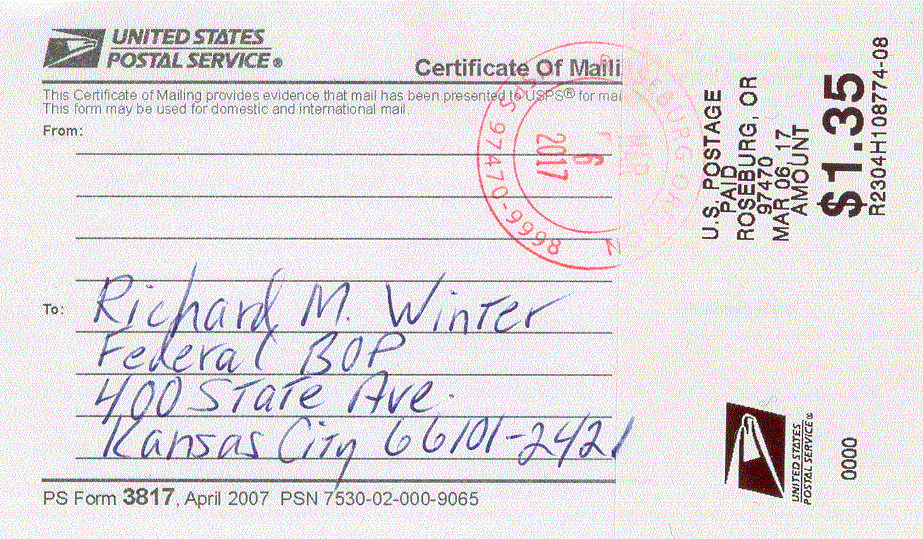 UNITED STATES
POSTAL SERVICE®
Certificate Of Maili
This Certificate of Mailing provides evidence that mail has been presented to USPS® for mai
This form may be used for domestic and international mail
From:
To: Richard M. Winter
Federal BOP
400 State Ave.
Kansas City 66101-2421
PS Form 3817, April 2007 PSN 7530-02-000-9065
USPS 97470-9998
6
2017
U.S. POSTAGE
PAID
ROSEBURG, OR
97470
MAR 06, 17
AMOUNT
$1.35
R2304H108774-08
UNITED STATES
POSTAL SERVICE®
0000